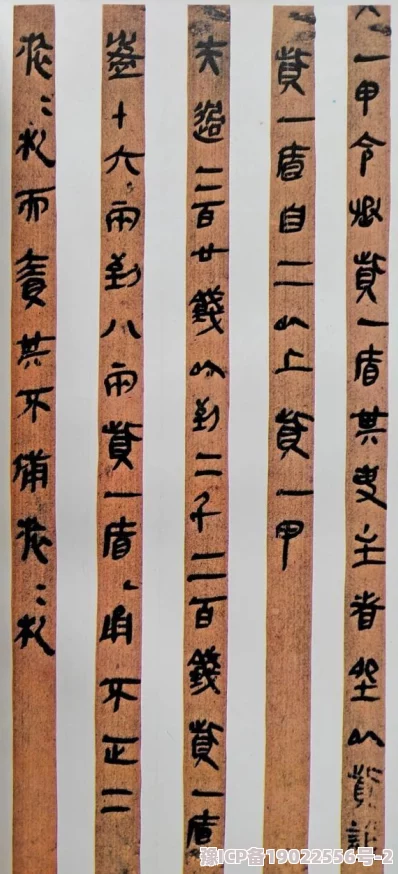 一甲令丞貲一盾其吏主者坐以貲誶
貲一盾自二以上貲一甲
夫過二百廿錢以到二千二百錢貲一盾
盈十六兩到八兩貲一盾甬不正二
旅=札而責其不備旅=札
豫ICP备19022556号-2